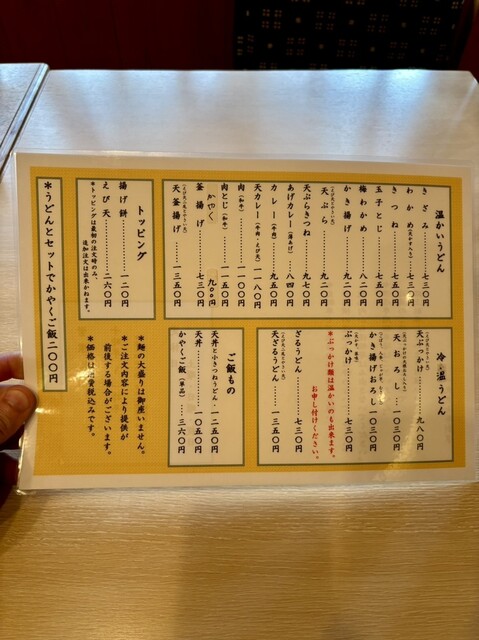 温かいうどん
きざみ………七三〇円
わかめ………七三〇円
きつね………七三〇円
玉子とじ………七五〇円
梅わかめ………八二〇円
かき揚げ………九二〇円
天ぷら………九二〇円
天ぷらきつね………九七〇円
あげカレー(薄あげ)………八四〇円
カレー(牛肉)………九五〇円
天カレー(牛肉・えび天)…一一八〇円
肉(和牛)………一一〇〇円
肉とじ(和牛)………一一五〇円
かやく………九〇〇円
釜揚げ………七三〇円
天釜揚げ………一三五〇円
トッピング
揚げ餅………一二〇円
えび天………二六〇円
*トッピングは最初の注文時のみ、
追加注文は出来かねます。
*うどんとセットでかやくご飯二〇〇円
冷・温うどん
天ぶっかけ………九八〇円
天おろし…一〇三〇円
かき揚げおろし…一〇三〇円
ぶっかけ………七三〇円
*ぶっかけ類は温かいのも出来ます。
お申し付けください。
ざるうどん………七三〇円
天ざるうどん…一三五〇円
ご飯もの
天丼と小きつねうどん・一二五〇円
天丼………一〇五〇円
かやくご飯(単品)…三六〇円
*麺の大盛りは御座いません。
*ご注文内容により提供が
前後する場合がございます。
*価格は消費税込みです。